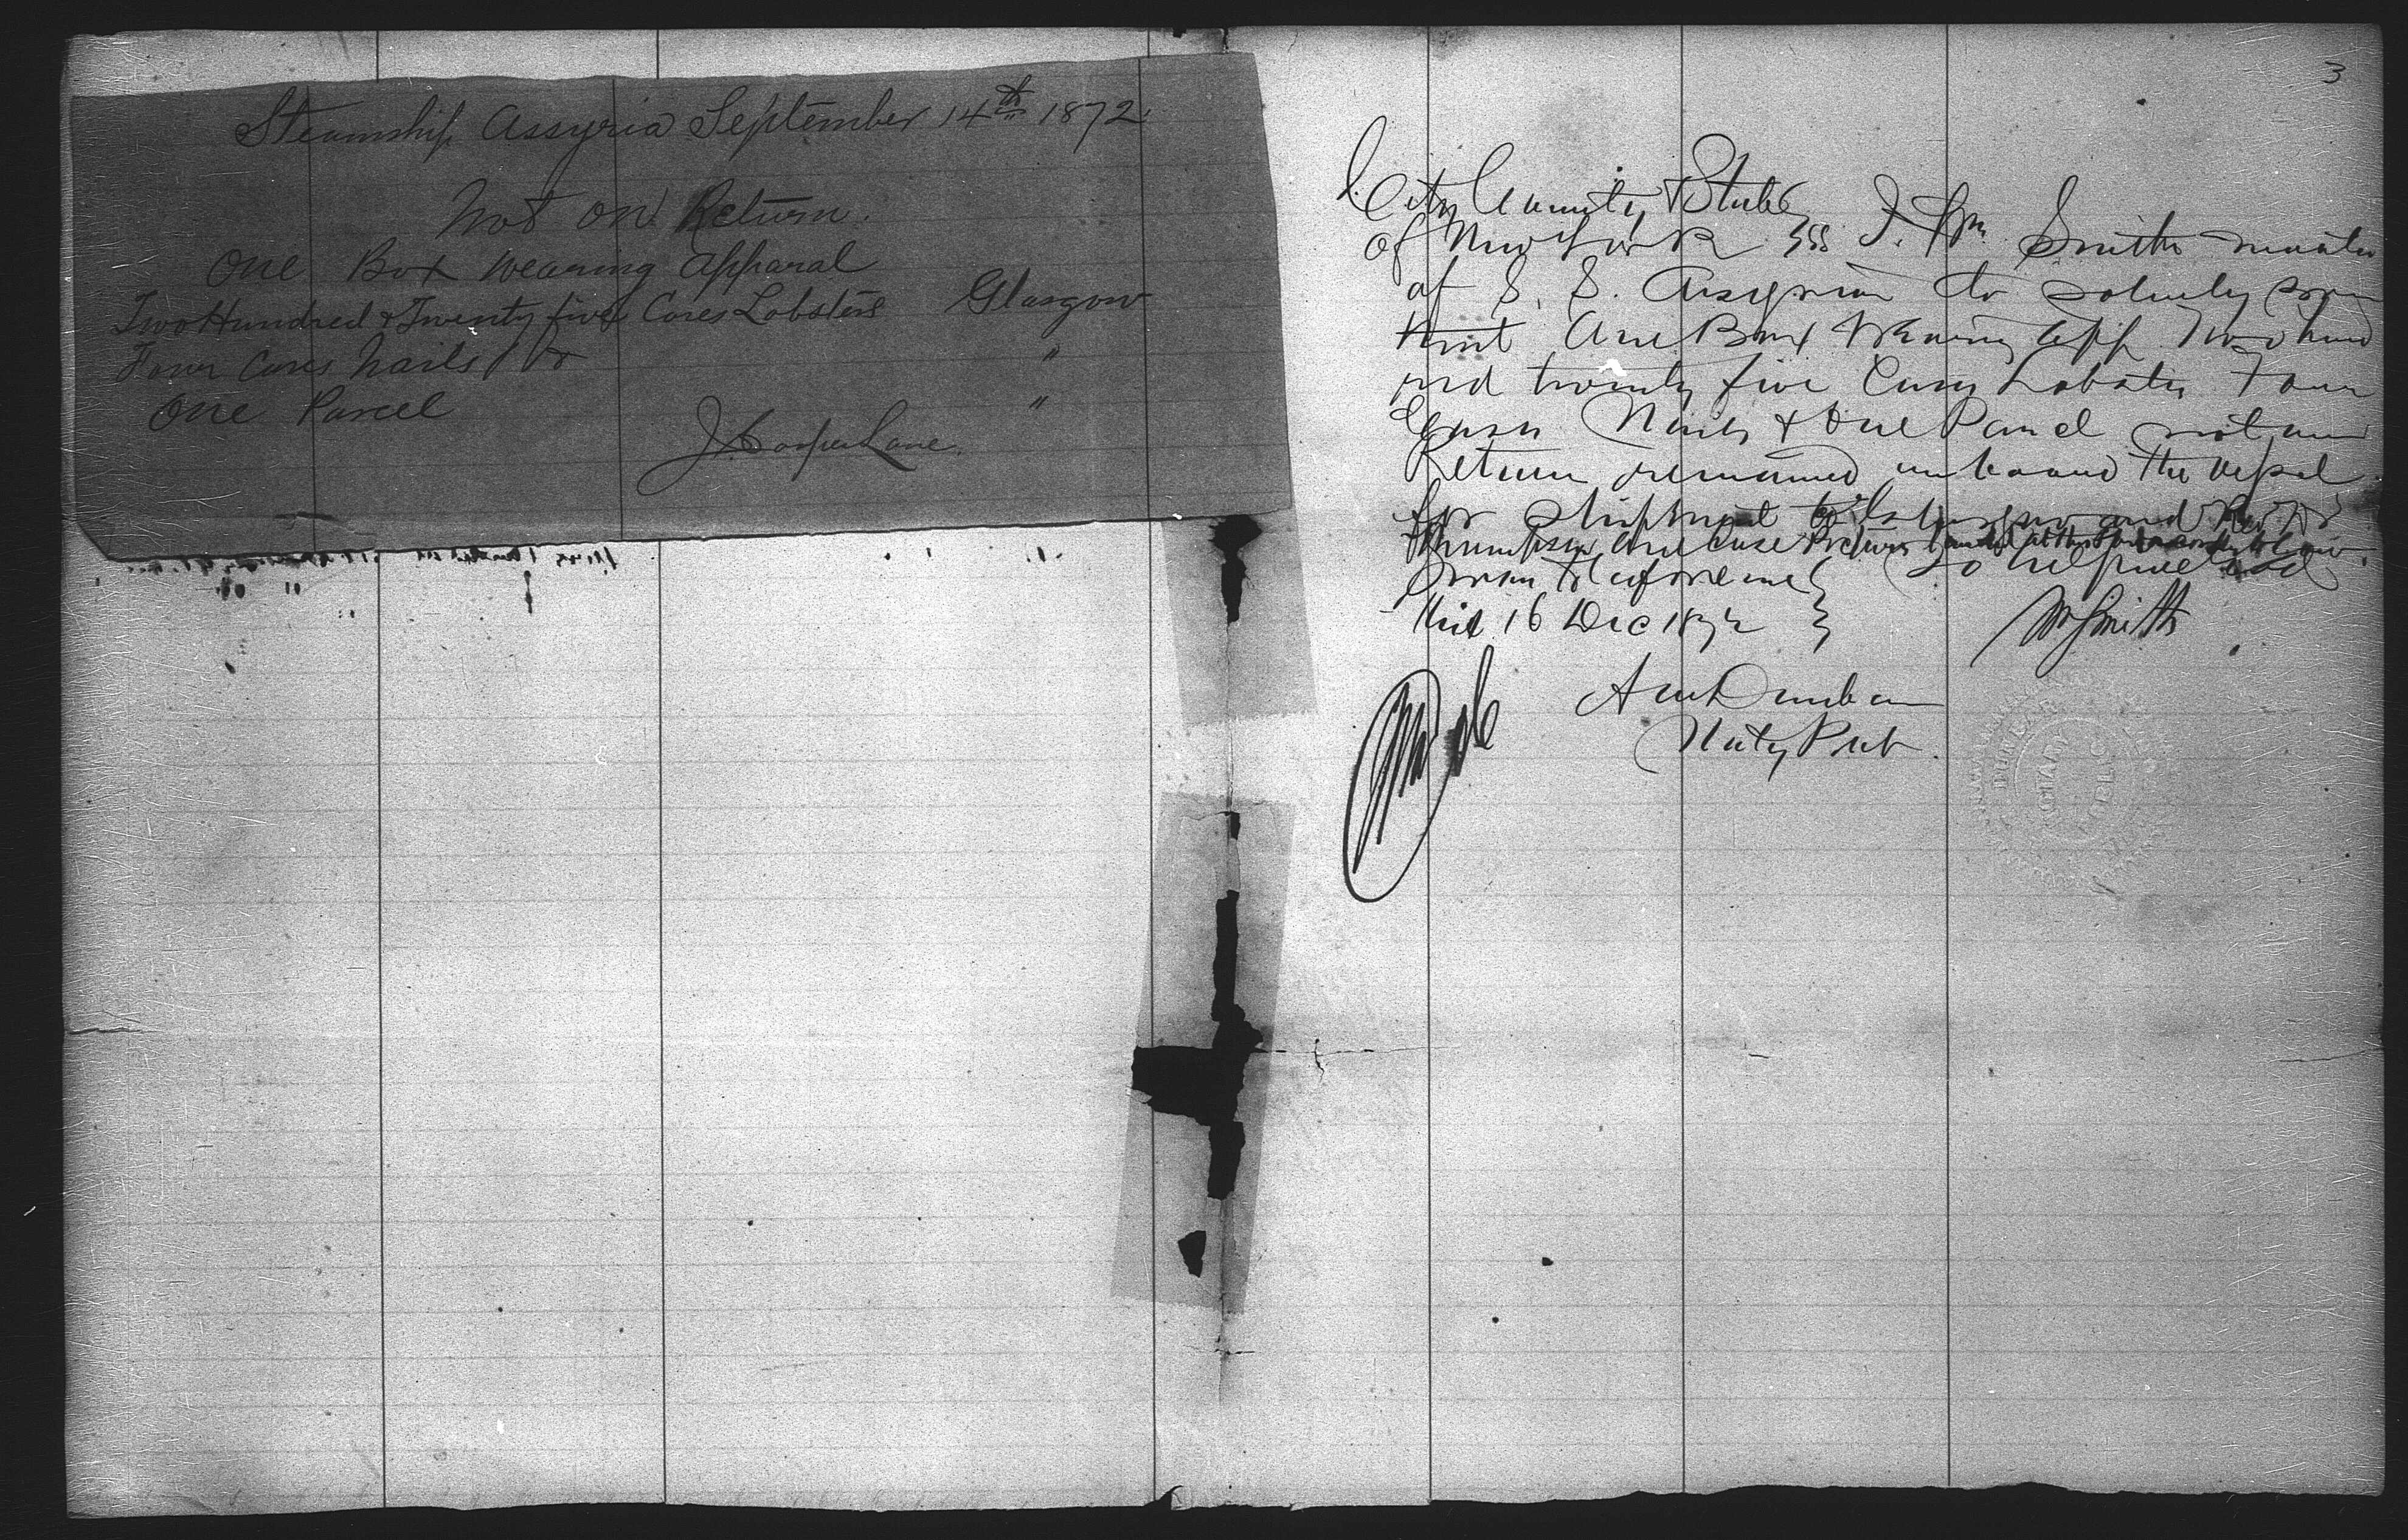 Steamship Assyria September 14th 1872
Not on Return.
One Box Wearing Apparal
Two Hundred & Twenty five Cases Lobsters Glasgow
Four Cases Nails "
One Parcel "
J. Cosper Lane.
3
City County & State
of New York ss I. Wm Smith master
of S. S. Assyria do solemly swear
that One Box Wearing App Two hund
red twenty five Cases Lobsters Four
Cases Nails & One Parcel not on
Return remained on board the vessel
for shipment to Glasgow and
One Case
Sworn to before me So help me God
this 16 Dec 1872
W Smith
Notry Pub
NOTARY
PUBLIC